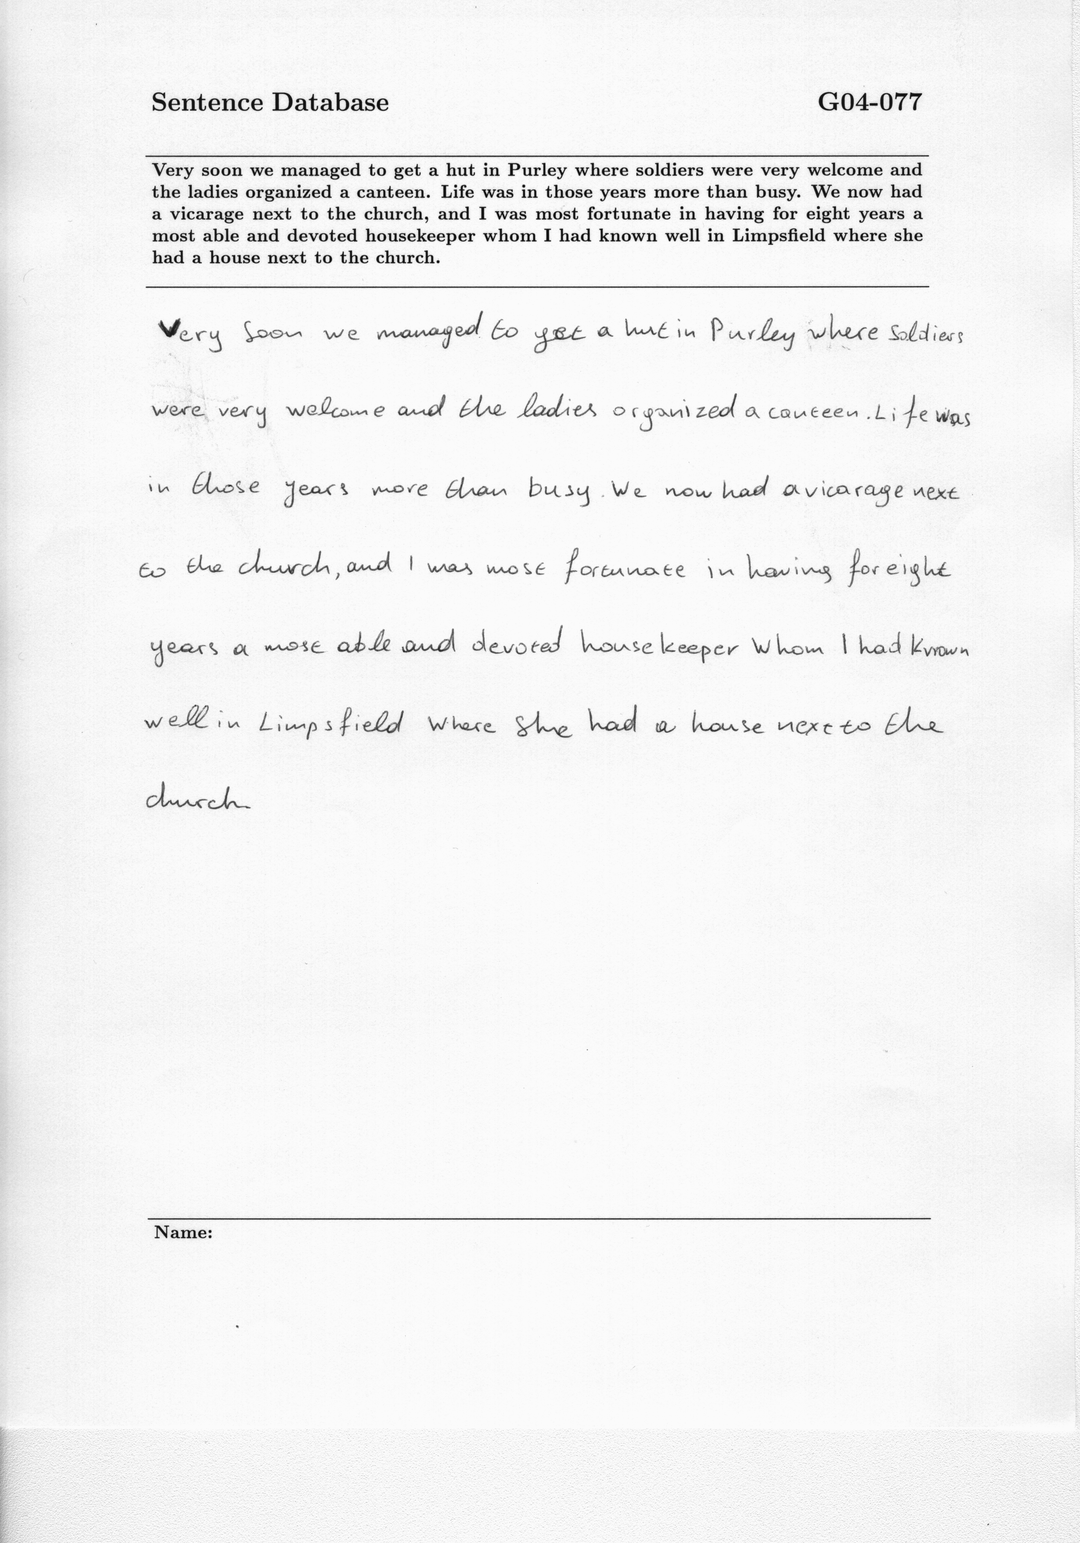 Sentence Database G04-077
Very soon we managed to get a hut in Purley where soldiers were very welcome and
the ladies organized a canteen. Life was in those years more than busy. We now had
a vicarage next to the church, and I was most fortunate in having for eight years a
most able and devoted housekeeper whom I had known well in Limpsfield where she
had a house next to the church.
Very soon we managed to get a hut in Purley where soldiers
were very welcome and the ladies organized a canteen. Life was
in those years more than busy. We now had a vicarage next
to the church, and I was most fortunate in having for eight
years a most able and devoted housekeeper whom I had known
well in Limpsfield where she had a house next to the
church
Name: